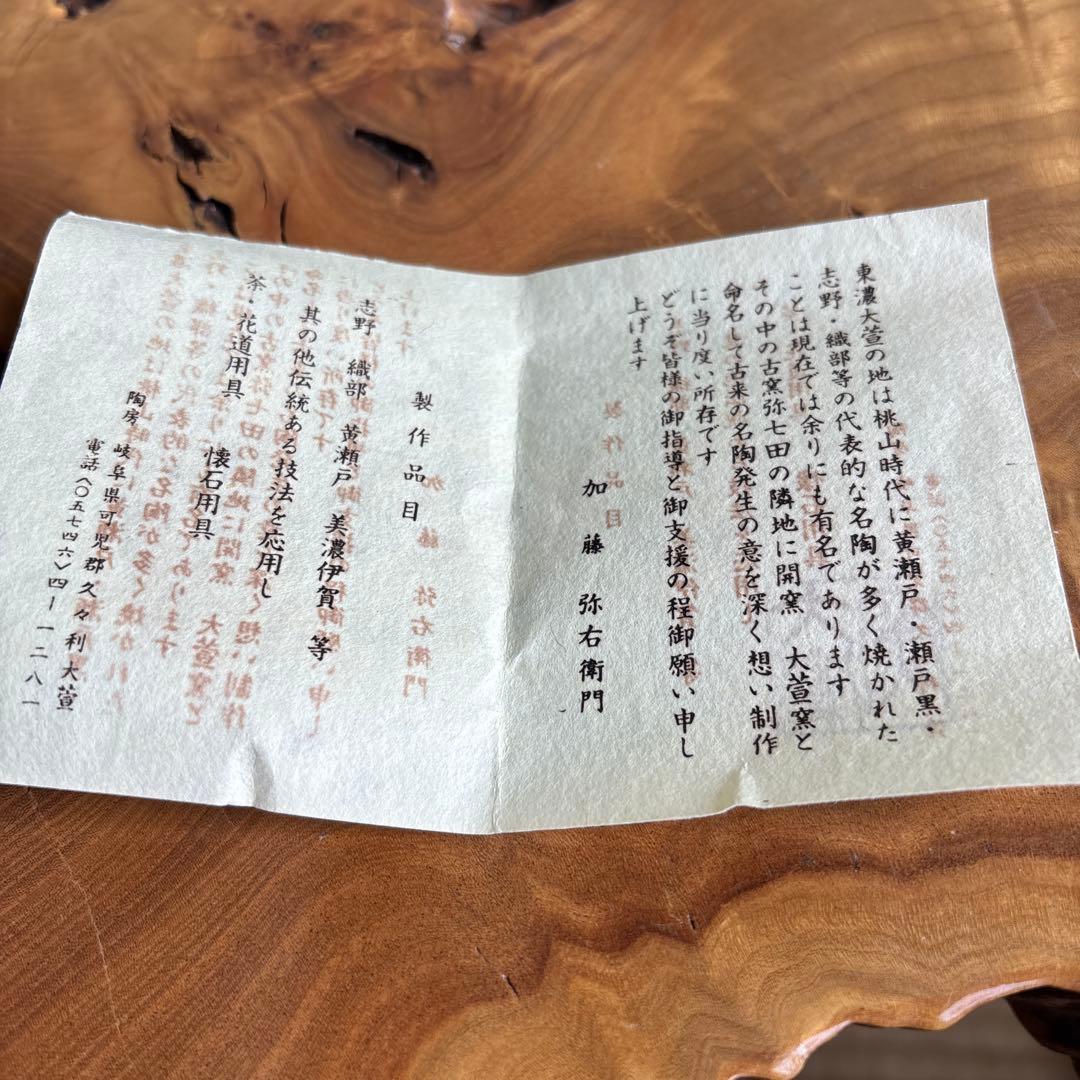 東濃大萱の地は桃山時代に黄瀬戸・瀬戸黒・
志野・織部等の代表的な名陶が多く焼かれた
ことは現在では余りにも有名であります
その中の古窯弥七田の隣地に開窯　大萱窯と
命名して古来の名陶発生の意を深く想い制作
に当り度い所存です
どうぞ皆様の御指導と御支援の程御願い申し
上げます
加藤　弥右衛門
製作品目
志野　織部　黄瀬戸　美濃伊賀　等
其の他伝統ある技法を応用し
茶・花道用具　懐石用具
陶房　岐阜県可児郡久々利大萱
電話〈〇五七四六〉四ー一二八一